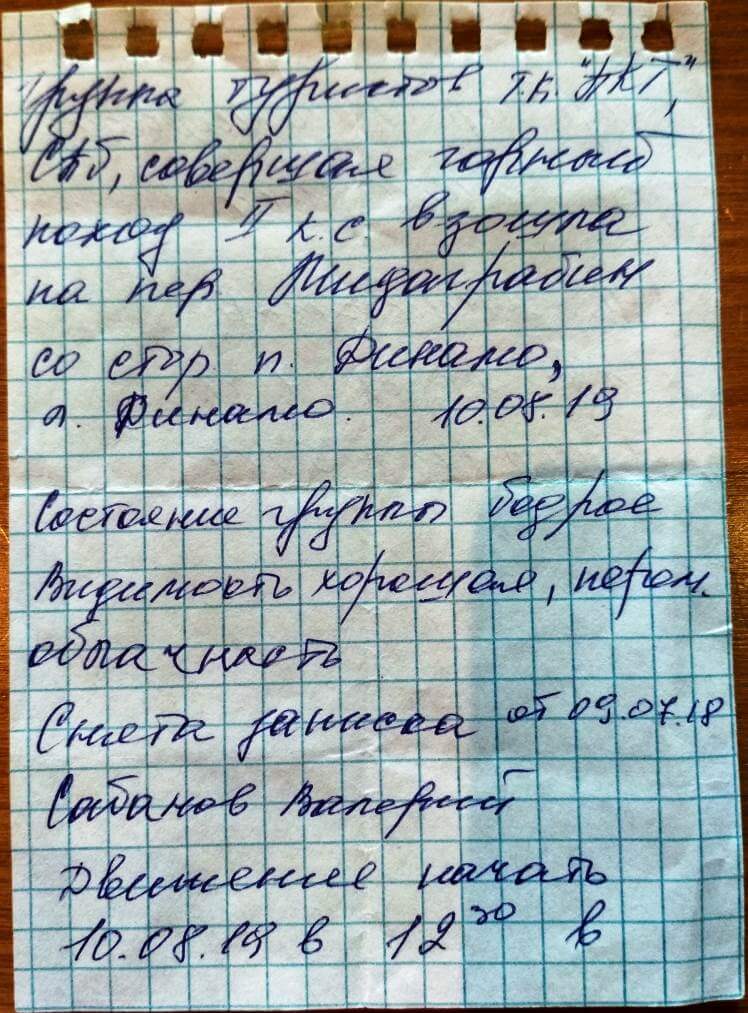 Группа туристов т.к. "ТКТ",
СПб, совершая горный
поход II к.с. взошла
на пер
со стор п. Динамо,
л. Динамо. 10.08.19
Состояние группы бодрое
Видимость хорошая, перем.
облачность
Снята записка от 09.07.18
Сабанов Валерий
Движение начать
10.08.19 в 12 30 в